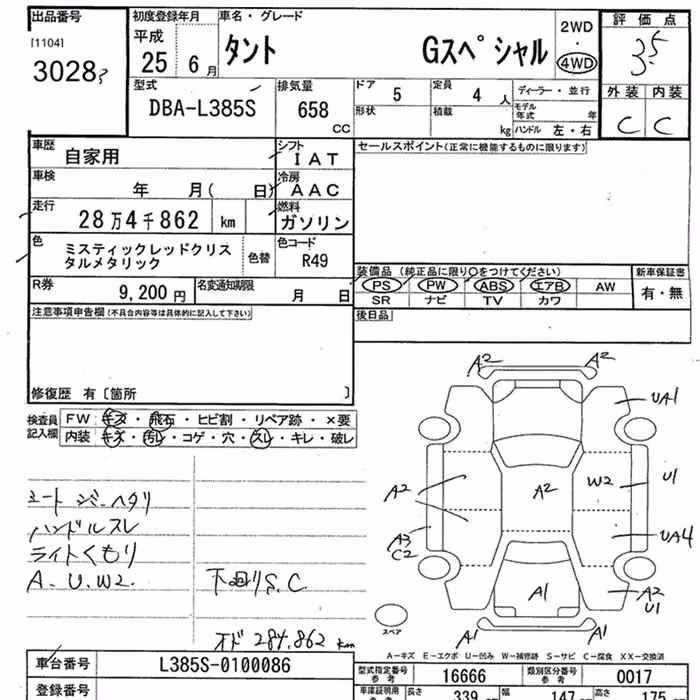 出品番号
[1104]
3028
初度登録年月
平成
25 6月
車名・グレード
タント Gスペシャル
2WD
4WD
評価点
3.5
外装 内装
C C
型式
DBA-L385S
排気量
658 CC
ドア 5
形状
定員 4 人
積載 kg
ディーラー・並行
モデル年式 年
ハンドル 左・右
車歴
自家用
シフト
IAT
セールスポイント(正常に機能するものに限ります)
車検
年 月( 日)
冷房
AAC
走行
28万4千862 km
燃料
ガソリン
色
ミスティックレッドクリスタルメタリック
色替
色コード
R49
R券
9,200円
名変通知期限
月 日
装備品 (純正品に限り○をつけてください)
PS PW ABS エアB AW
SR ナビ TV カワ
新車保証書
有・無
注意事項申告欄(不具合内容等は具体的に記入して下さい)
後日品
修復歴 有〔箇所 〕
検査員記入欄
FW キズ・飛石・ヒビ割・リペア跡・×要
内装 キズ・汚レ・コゲ・穴・スレ・キレ・破レ
ハンドルスレ
ライトくもり
A. U. W2.
下回りS.C
オド 284.862 km
A2 A2
UA1
A2 A2 W2 U1
A3
C2
UA4
A1 A2
U1
A1 A1
スペア
A-キズ E-エクボ U-凹み W-補修跡 S-サビ C-腐食 XX-交換済
車台番号
L385S-0100086
登録番号
型式指定番号
参考
16666
類別区分番号
参考
0017
長さ 339 幅 147 高さ 175